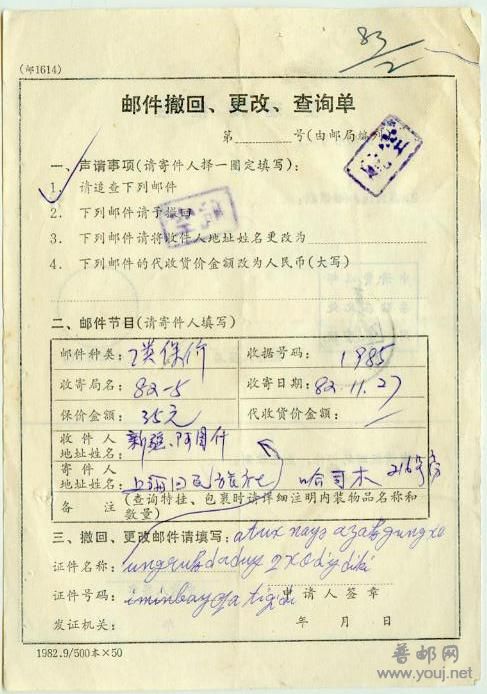 83/2
(邮1614)
邮件撤回、更改、查询单
第 号(由邮局编
一、声请事项(请寄件人择一圈定填写):
1. 请追查下列邮件
2. 下列邮件请予撤回
3. 下列邮件请将收件人地址姓名更改为
4. 下列邮件的代收货价金额改为人民币(大写)
二、邮件节目(请寄件人填写)
邮件种类: 保价 收据号码: 1985
收寄局名: 82-5 收寄日期: 82.11.27
保价金额: 35元 代收货价金额:
收件人地址姓名: 新疆.阿图什
寄件人地址姓名: 上海回民旅社 哈司木 216
备注 (查询特挂、包裹时请详细注明内装物品名称和数量)
三、撤回、更改邮件请填写: atux naye azak
证件名称:
证件号码: 申请人签章
发证机关: 年 月 日
1982.9/500本×50
普邮网
www.youj.net